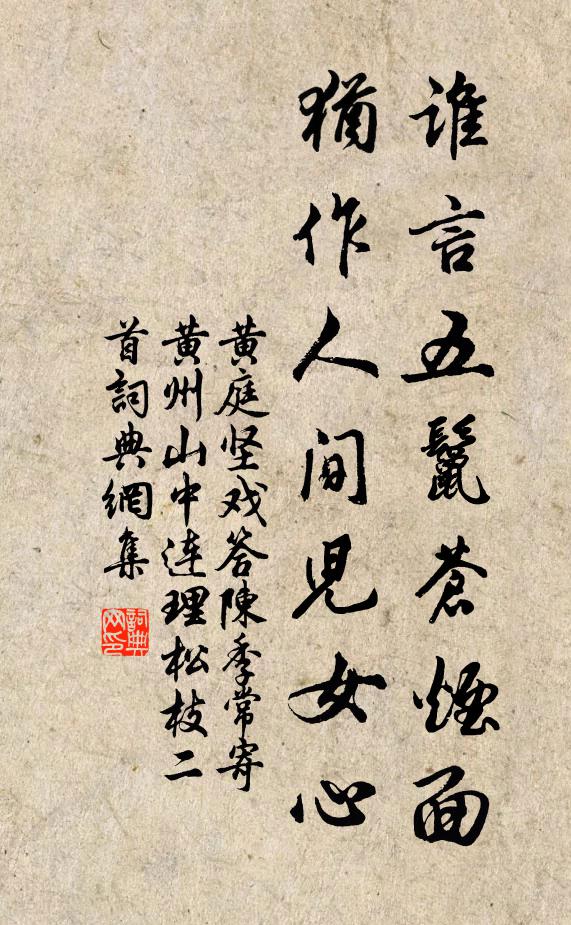 谁言五鬣蒼煙面
猶作人间児女心
黄庭坚戏答陳季常寄
黄州山中连理松枝二
首詞典網集
詞典
网印